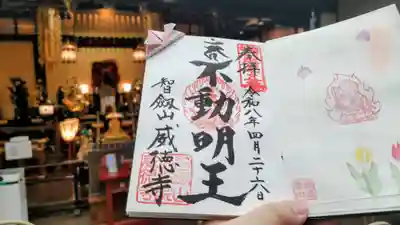 奉拝
令和八年四月二十六日
不動明王
智劔山威徳寺